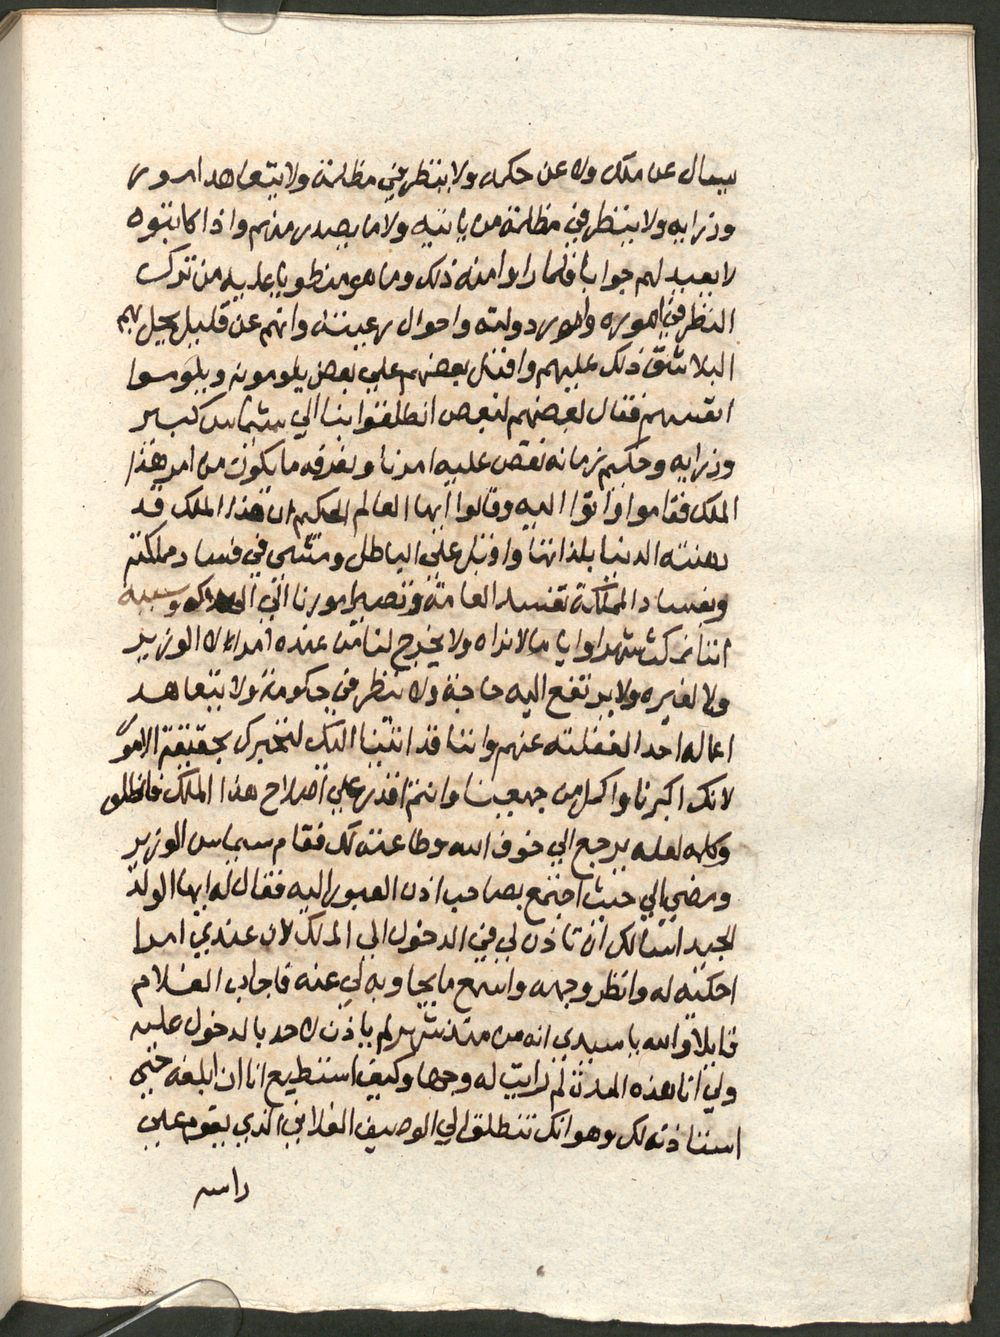 يسال عن ملك ولا عن حكم ولا ينظر في مظلمة ولا يتعاهد امور
وزرايه ولا ينظر في مظلمة من ياتيه ولا ما يصدر منهم واذا كاتبوه
لا يعيد لهم جوابا فلما راوا منه ذلك وما هو منطويا عليه من ترك
النظر في اموره وامور دولته واحوال رعيته وانهم عن قليل يحل بهم
البلا شق ذلك عليهم واقبل بعضهم علي بعض يلومون ويلوموا
انفسهم فقال بعضهم لبعض انطلقوا بنا الي شماس كبير
وزرايه وحكيم زمانه نقص عليه امرنا ونعرفه ما يكون من امر هذا
الملك فقاموا واتوا اليه وقالوا ايها العالم الحكيم ان هذا الملك قد
دهته الدنيا بلذاتها واقبل علي الباطل ومشي في فساد مملكته
وبفساد المملكة تفسد العامة وتصير امورنا الي الهلاك وسببه
اننا نمكث شهرا وايا ما لا نراه ولا يخرج لنا من عنده امر لا للوزير
ولا لغيره ولا يرتفع اليه حاجة ولا ينظر في حكومة ولا يتعاهد
اعماله احدا لغفلته عنهم واننا قد اتينا اليك لنخبرك بحقيقة الامور
لانك اكبرنا واكمل من جميعنا وانتم اقدر علي اصلاح هذا الملك فانطلق
وكلمه لعله يرجع الي خوف الله وطاعته لك فقام سيماس الوزير
ومضي الي حيث اجتمع بصاحب اذن العبور اليه فقال له ايها الولد
الجيد اسالك ان تاذن لي في الدخول الي الملك لان عندي امرا
احكيه له وانظر وجهه واسمع ما يجاوبه لي عنه فاجاب الغلام
قايلا والله يا سيدي انه من منذ شهر لم ياذن لاحد بالدخول عليه
ولي انا هذه المدة لم رايت له وجها وكيف استطيع انا ان ابلغه حتي
استاذنه لك وهو انك تنطلق الي الوصيف الفلاني الذي يقوم علي
راسه